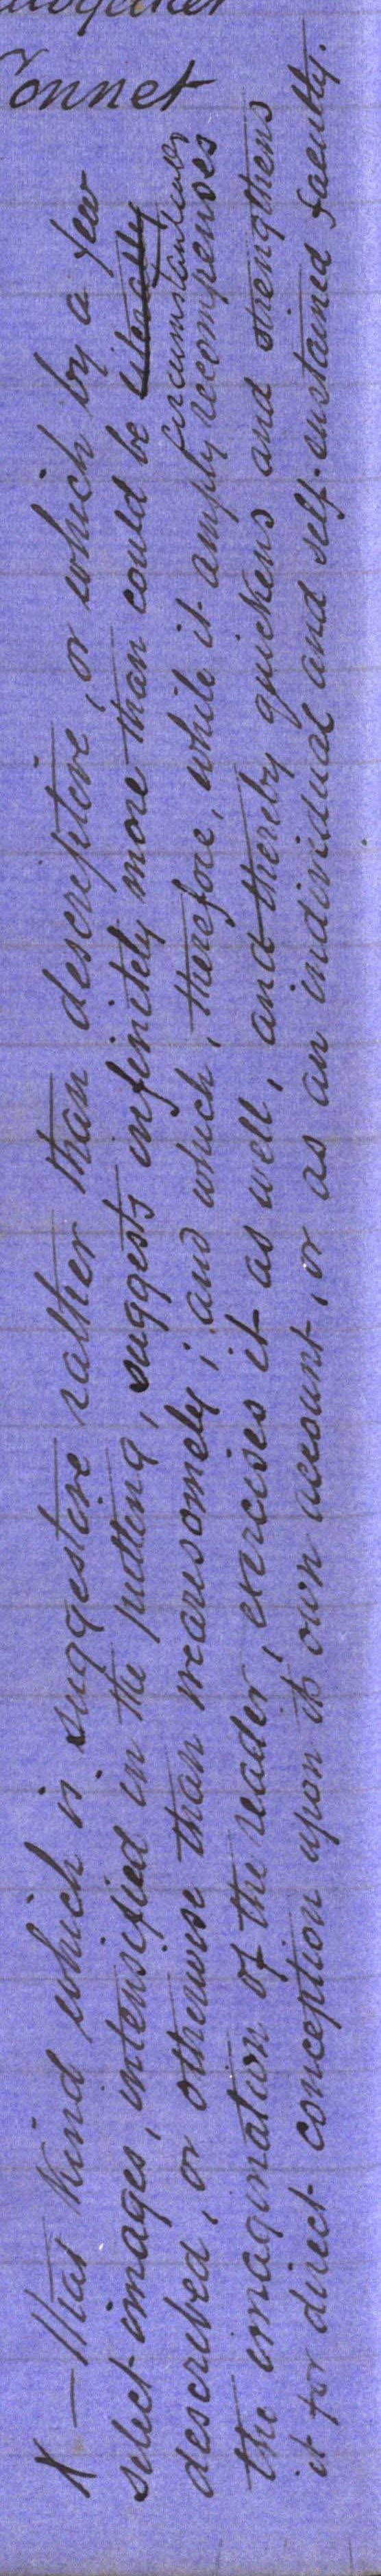 altogether
Connet
X — That kind which is suggestive rather than descriptive, or which by a few
select images, intensified in the putting, suggests infinitely more than could be literally
circumstantially
described, or otherwise than wearisomely; and which, therefore, while it amply recompenses
the imagination of the reader, exercises it as well, and thereby quickens and strengthens
it for direct conception upon its own account, or as an individual and self-sustained faculty.